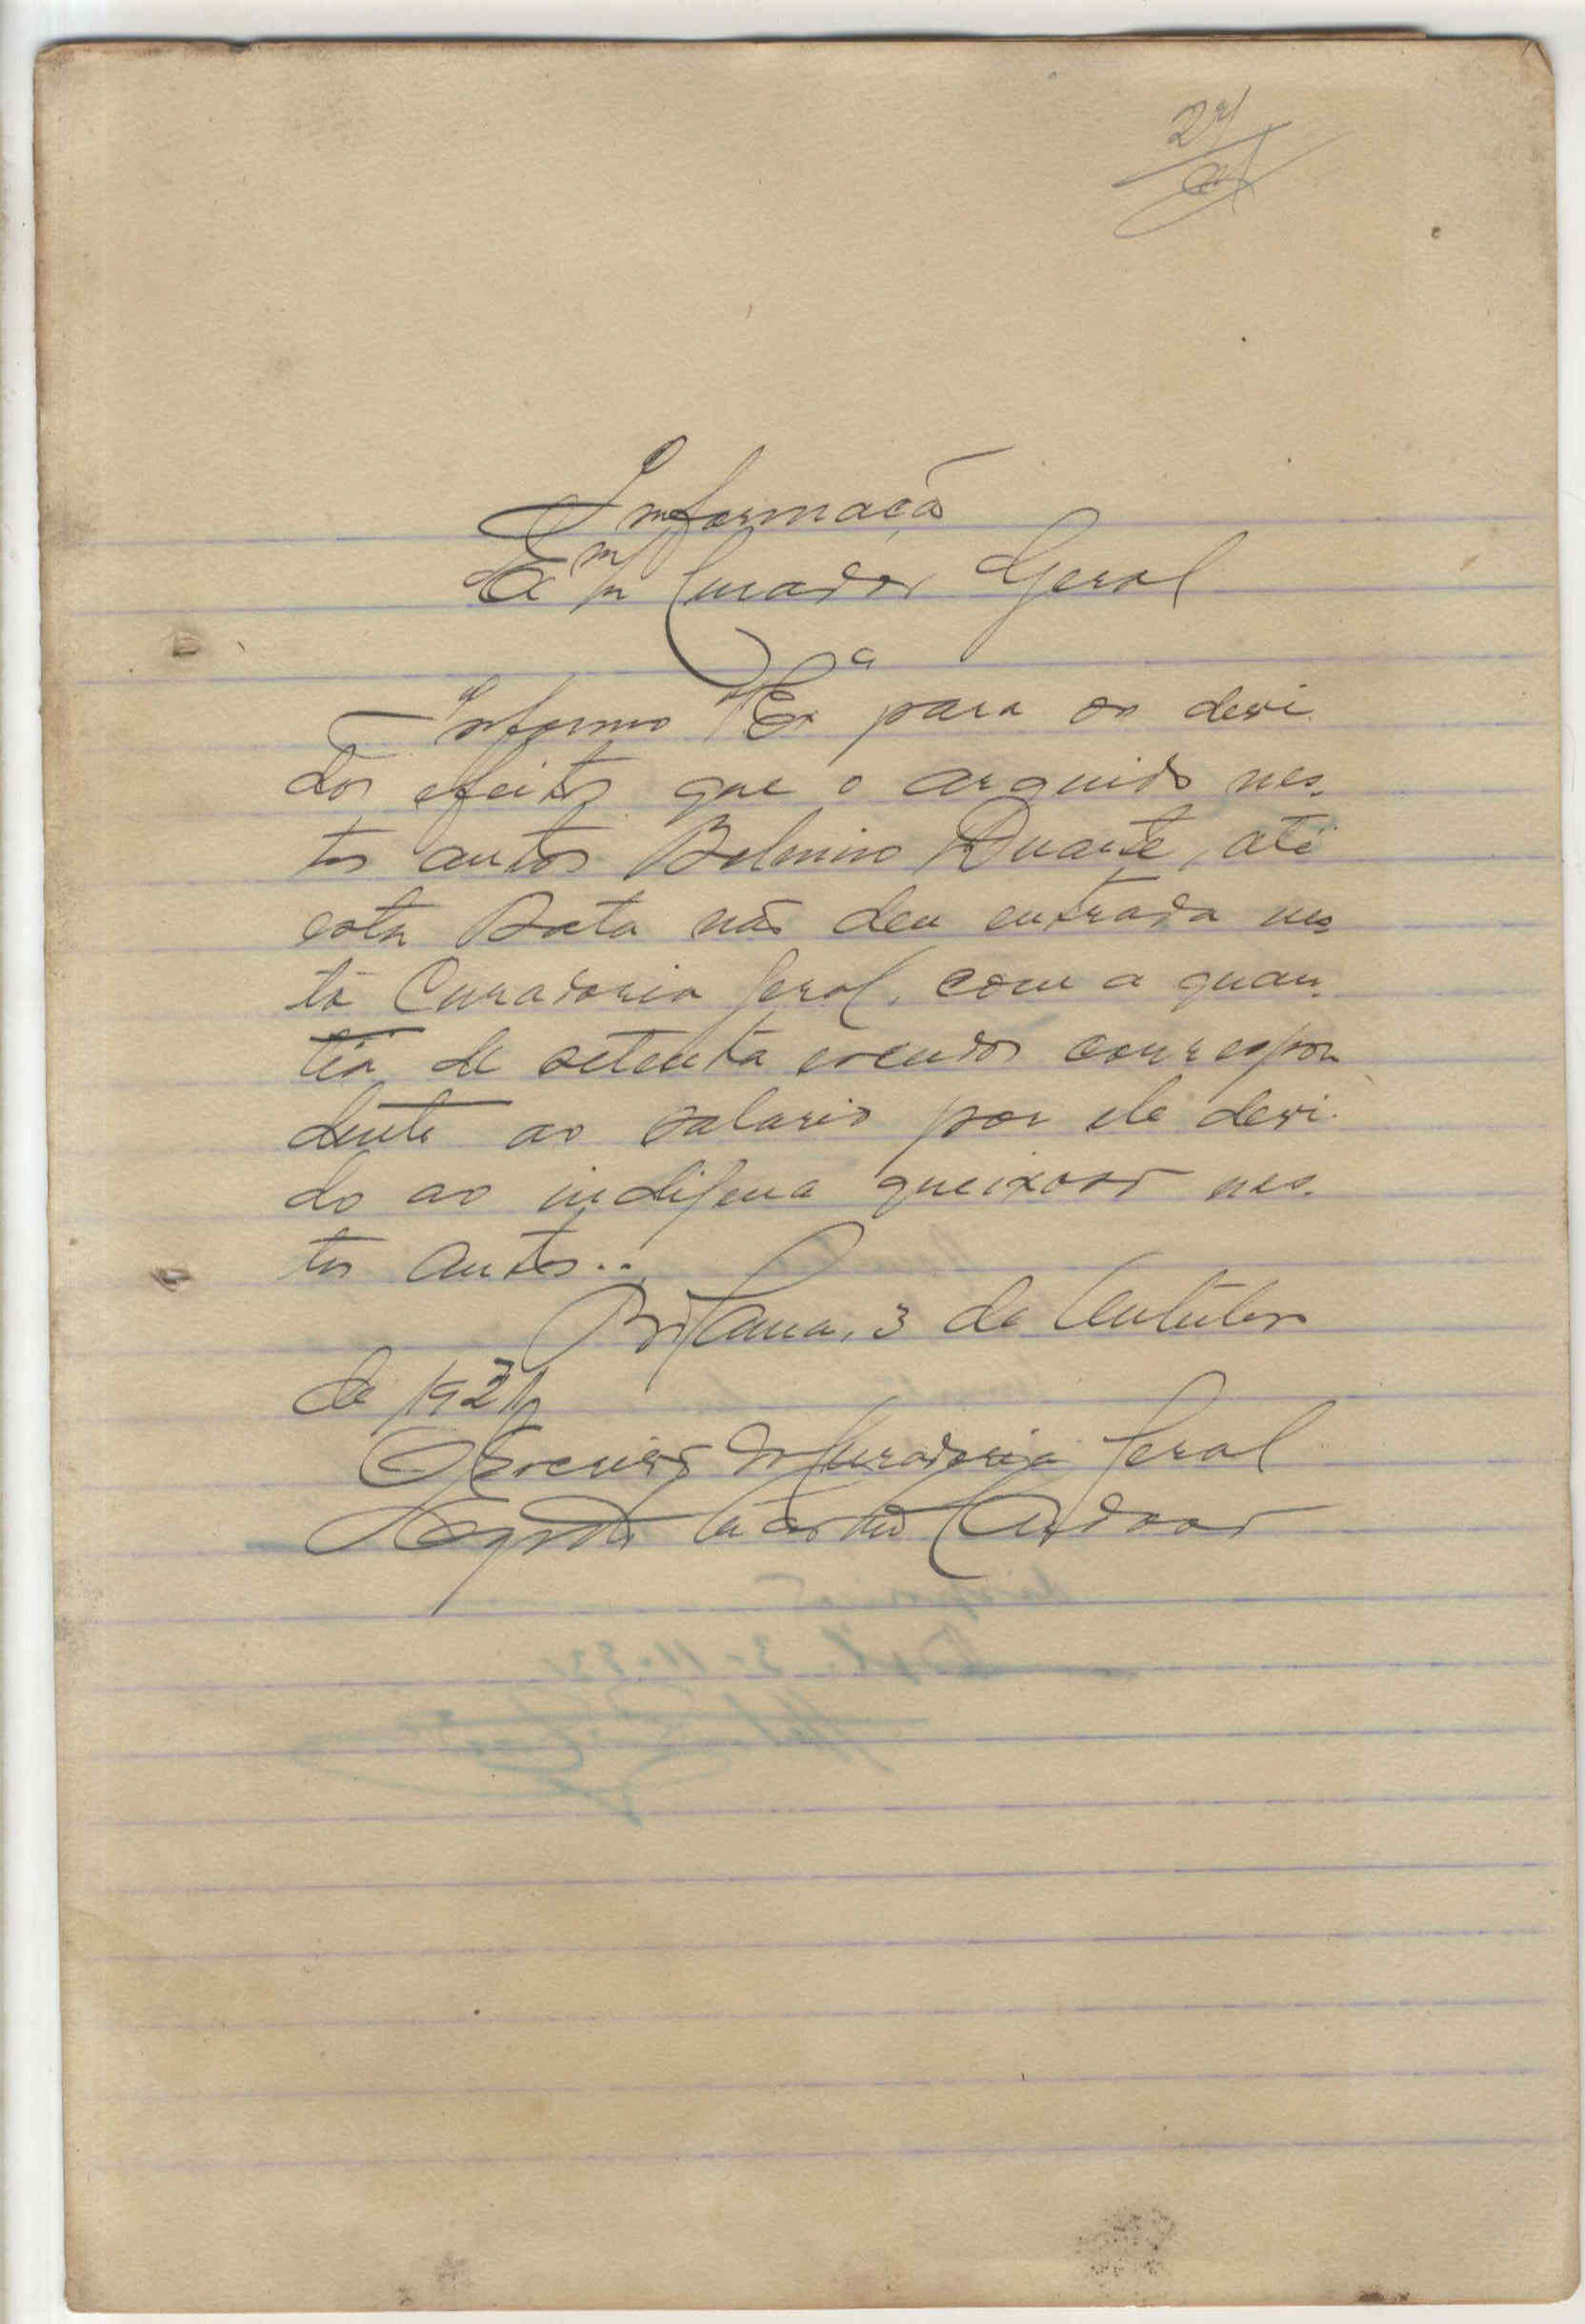 27
Informação
Exmº Curador Geral
Informo V. Exª para os devi-
dos efeitos que o arguido nes-
tes autos Belmiro Duarte, até
esta data não deu entrada nes-
ta Curadoria Geral, com a quan-
tia de setenta escudos correspon-
dente ao salario por ele devi-
do ao indigena queixoso nes-
tes autos..
Bolama, 3 de Outubro
de 1931
O Escrivão da Curadoria Geral
Cardoso
3-11-931